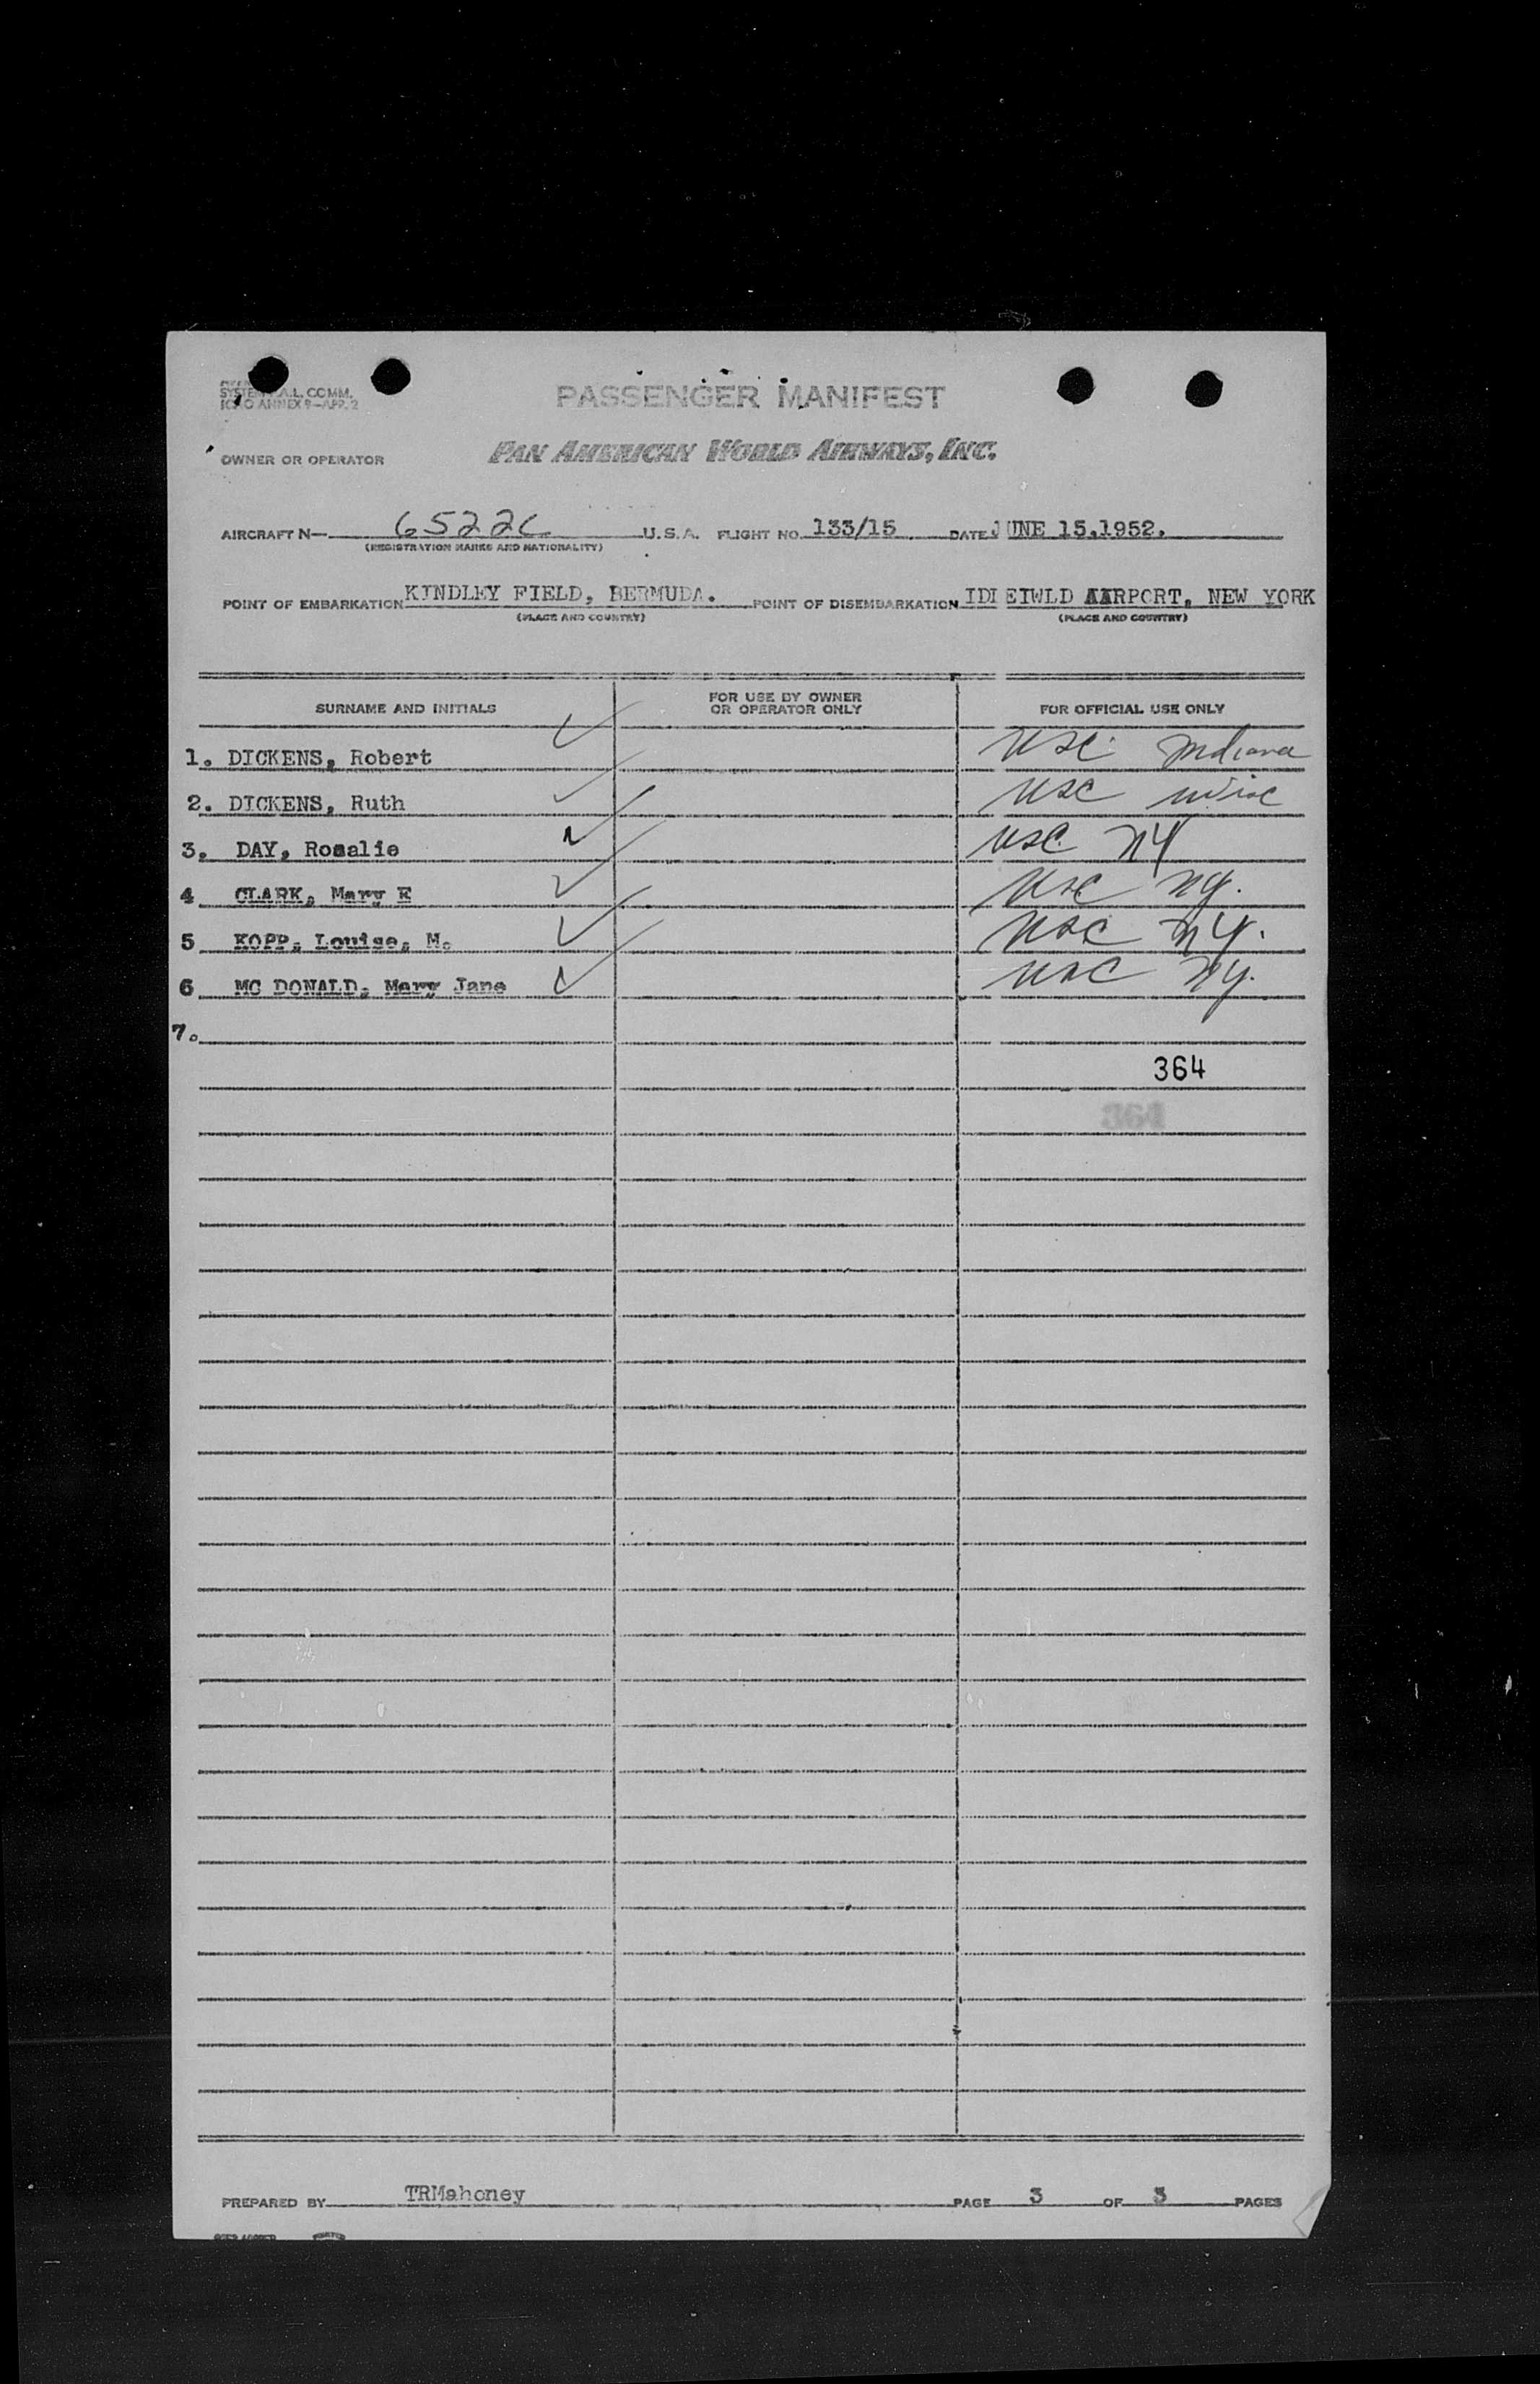 SYSTEM A.L. COMM.
ICAO ANNEX 9—APP. 2
PASSENGER MANIFEST
OWNER OR OPERATOR PAN AMERICAN WORLD AIRWAYS, INC.
AIRCRAFT N— 6522C U.S.A. FLIGHT NO. 133/15 DATE JUNE 15,1952.
(REGISTRATION MARKS AND NATIONALITY)
POINT OF EMBARKATION KINDLEY FIELD, BERMUDA. POINT OF DISEMBARKATION IDIEIWLD AIRPORT, NEW YORK
(PLACE AND COUNTRY) (PLACE AND COUNTRY)
SURNAME AND INITIALS FOR USE BY OWNER OR OPERATOR ONLY FOR OFFICIAL USE ONLY
1. DICKENS, Robert USC Indiana
2. DICKENS, Ruth USC Wisc
3. DAY, Rosalie USC NY
4 CLARK, Mary E USC NY.
5 KOPP, Louise, M. USC NY.
6 MC DONALD, Mary Jane USC NY.
7.
364
364
PREPARED BY TRMahoney PAGE 3 OF 3 PAGES